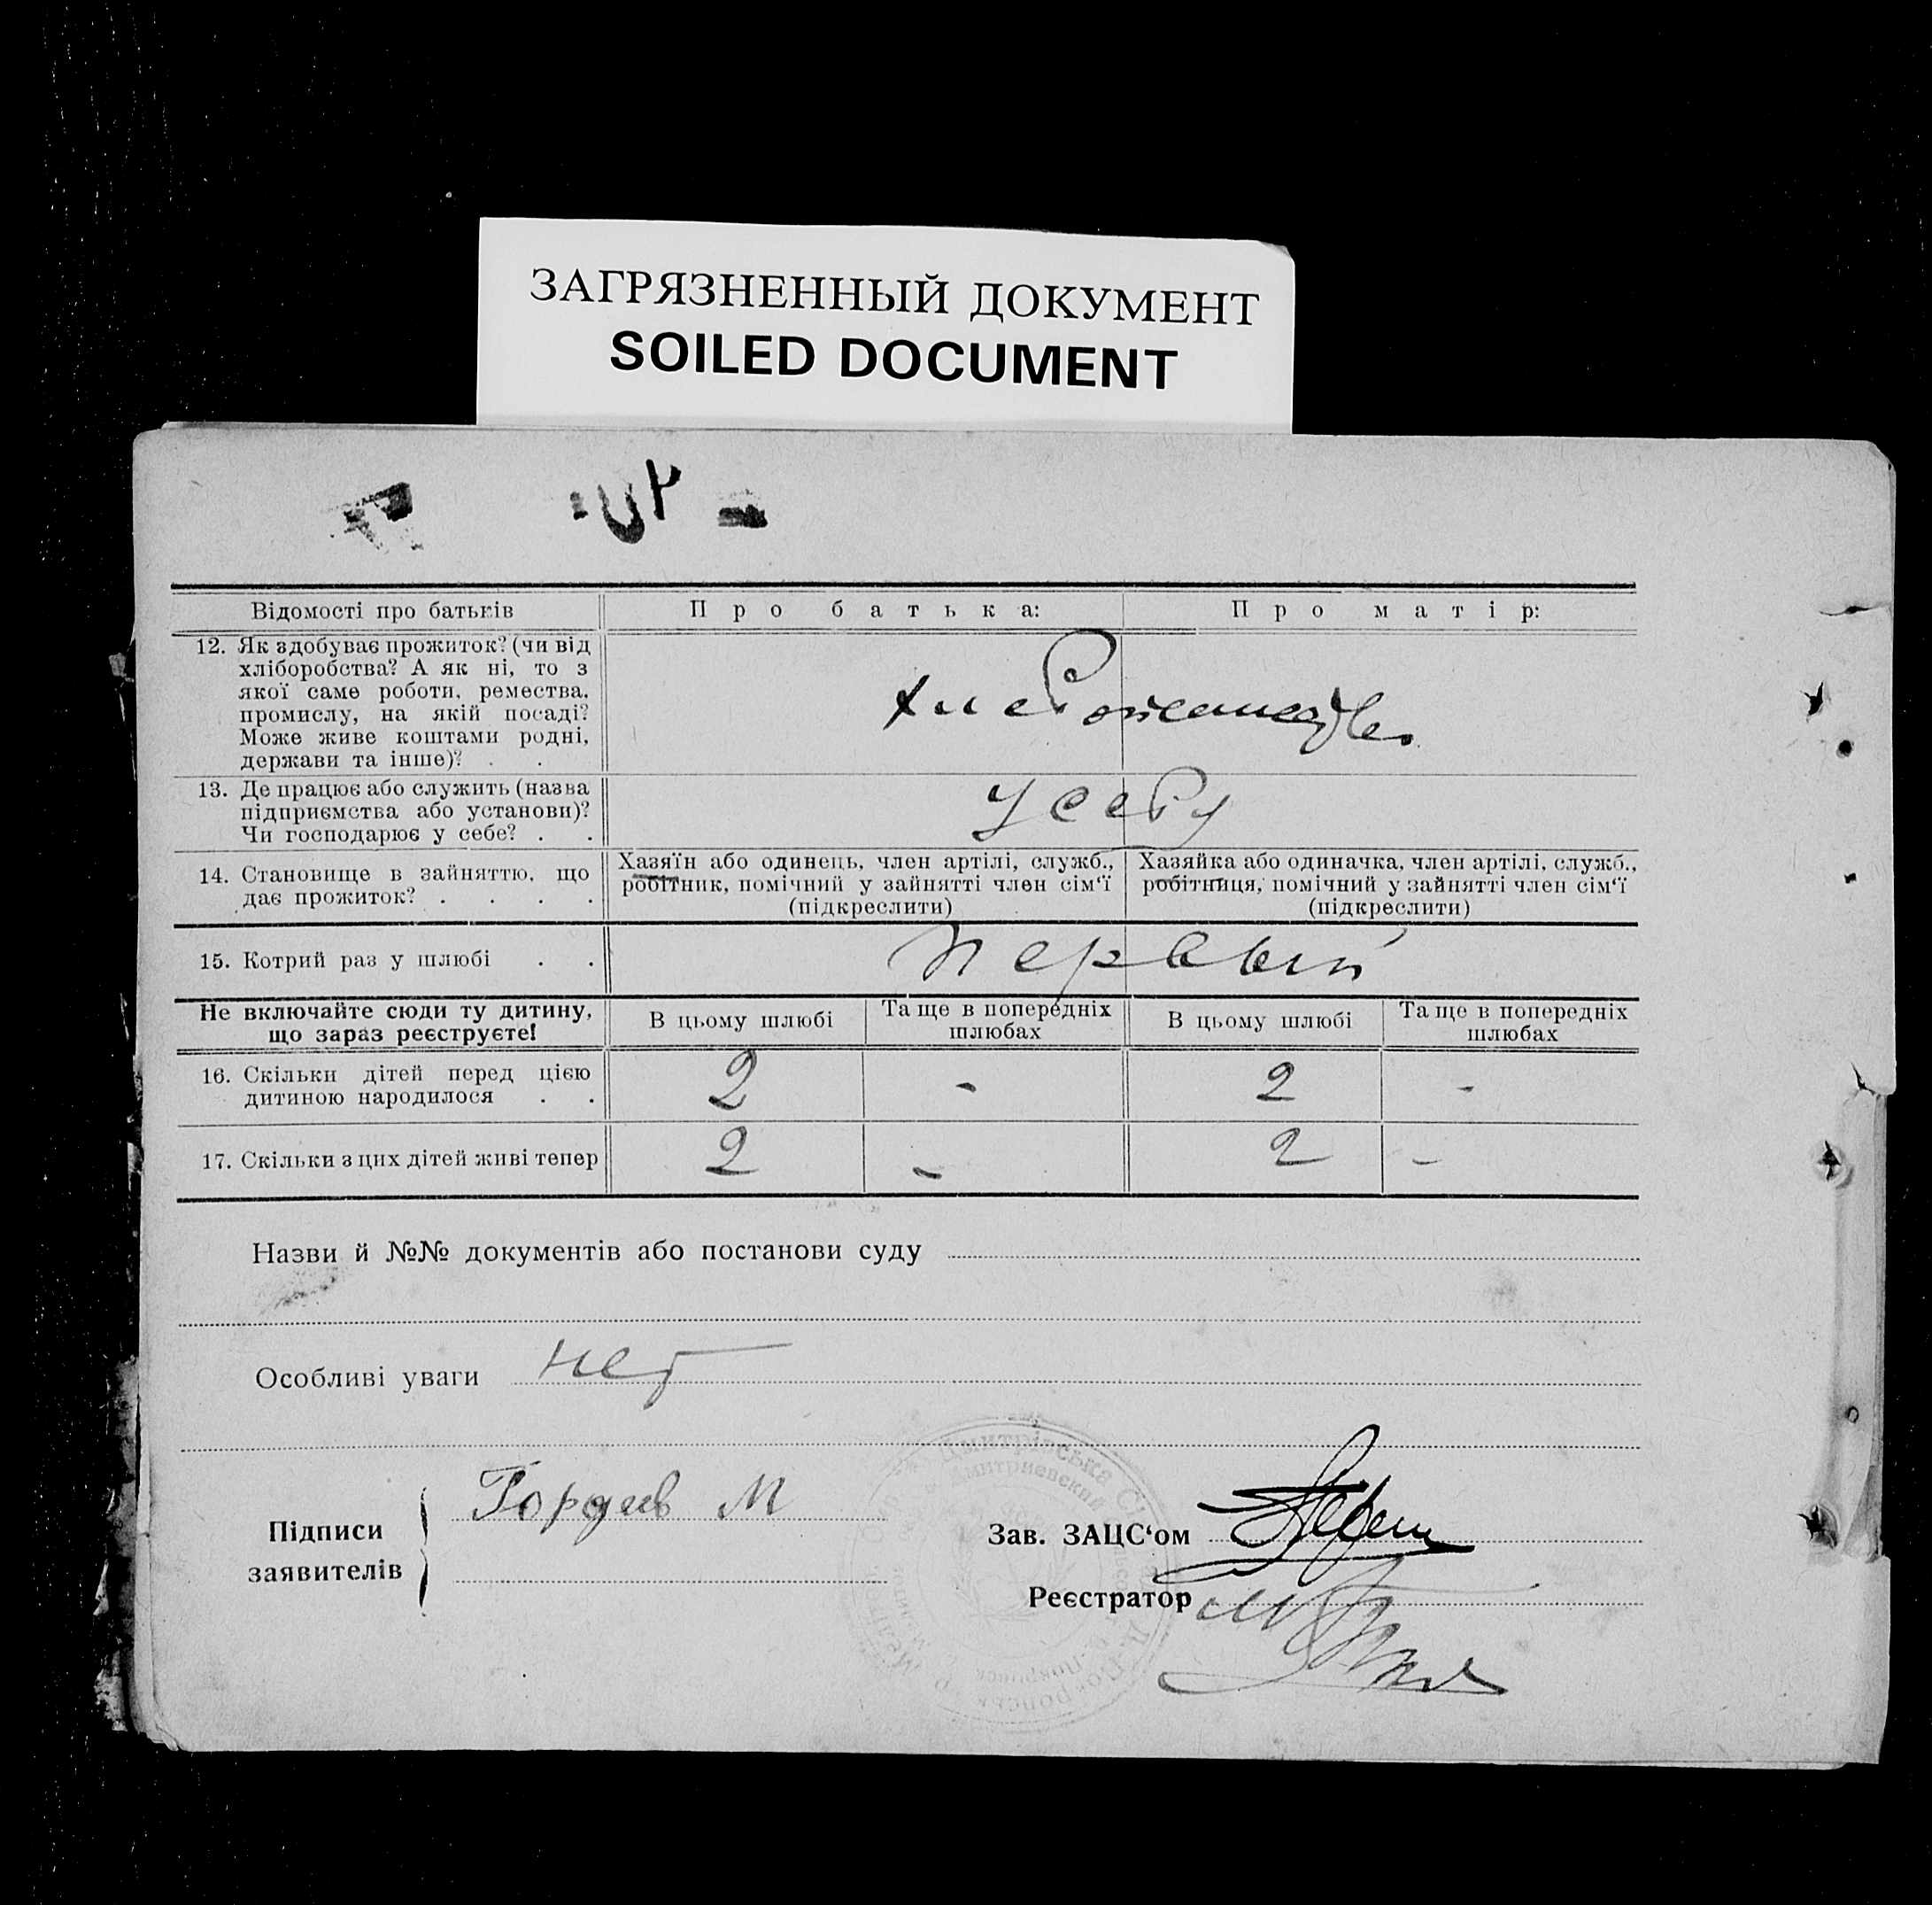 ЗАГРЯЗНЕННЫЙ ДОКУМЕНТ
SOILED DOCUMENT
Відомості про батьків
Про батька:
Про матір:
12. Як здобуває прожиток? (чи від
хліборобства? А як ні, то з
якої саме роботи, ремества,
промислу, на якій посаді?
Може живе коштами родні,
держави та інше)? . .
13. Де працює або служить (назва
підприємства або установи)?
Чи господарює у себе? . .
у себя
14. Становище в зайняттю, що
дає прожиток? . . . .
Хазяїн або одинець, член артілі, служб.,
робітник, помічний у зайнятті член сім‘ї
(підкреслити)
Хазяйка або одиначка, член артілі, служб.,
робітниця, помічний у зайнятті член сім‘ї
(підкреслити)
15. Котрий раз у шлюбі . .
первый
Не включайте сюди ту дитину,
що зараз реєструєте!
В цьому шлюбі
Та ще в попередніх
шлюбах
В цьому шлюбі
Та ще в попередніх
шлюбах
16. Скільки дітей перед цією
дитиною народилося . .
2 - 2 -
17. Скільки з цих дітей живі тепер
2 - 2 -
Назви й №№ документів або постанови суду
Особливі уваги нет
Підписи
заявителів
Гордиев М
Зав. ЗАЦС‘ом
Реєстратор